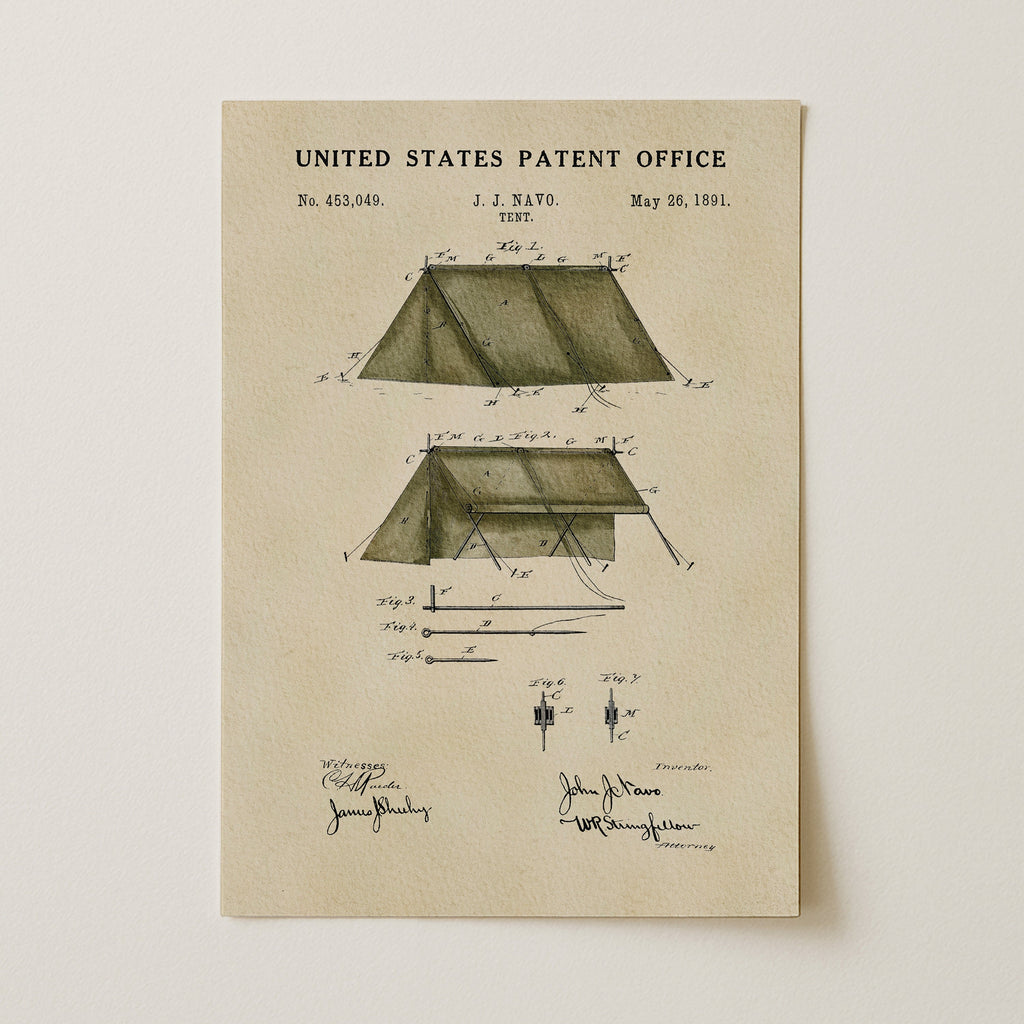 UNITED STATES PATENT OFFICE
No. 453,049. J. J. NAVO. May 26, 1891.
TENT.
Fig 1.
F M G L G M F
C C
A
G
H
E E
H M
F M G L Fig. 2. G M F
C C
A
G G
H
D D
E
F
Fig. 3. C
Fig. 4. D
Fig. 5. E
Fig. 6. Fig. 7.
C
L M
C
Witnesses: Inventor.
John J. Navo
James J Sheehy
WR Stringfellow
Attorney